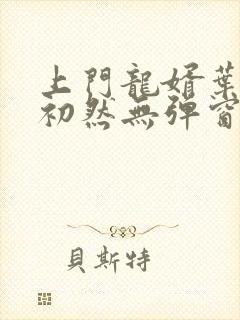 上門龍婿葉
初然無彈窗
貝斯特